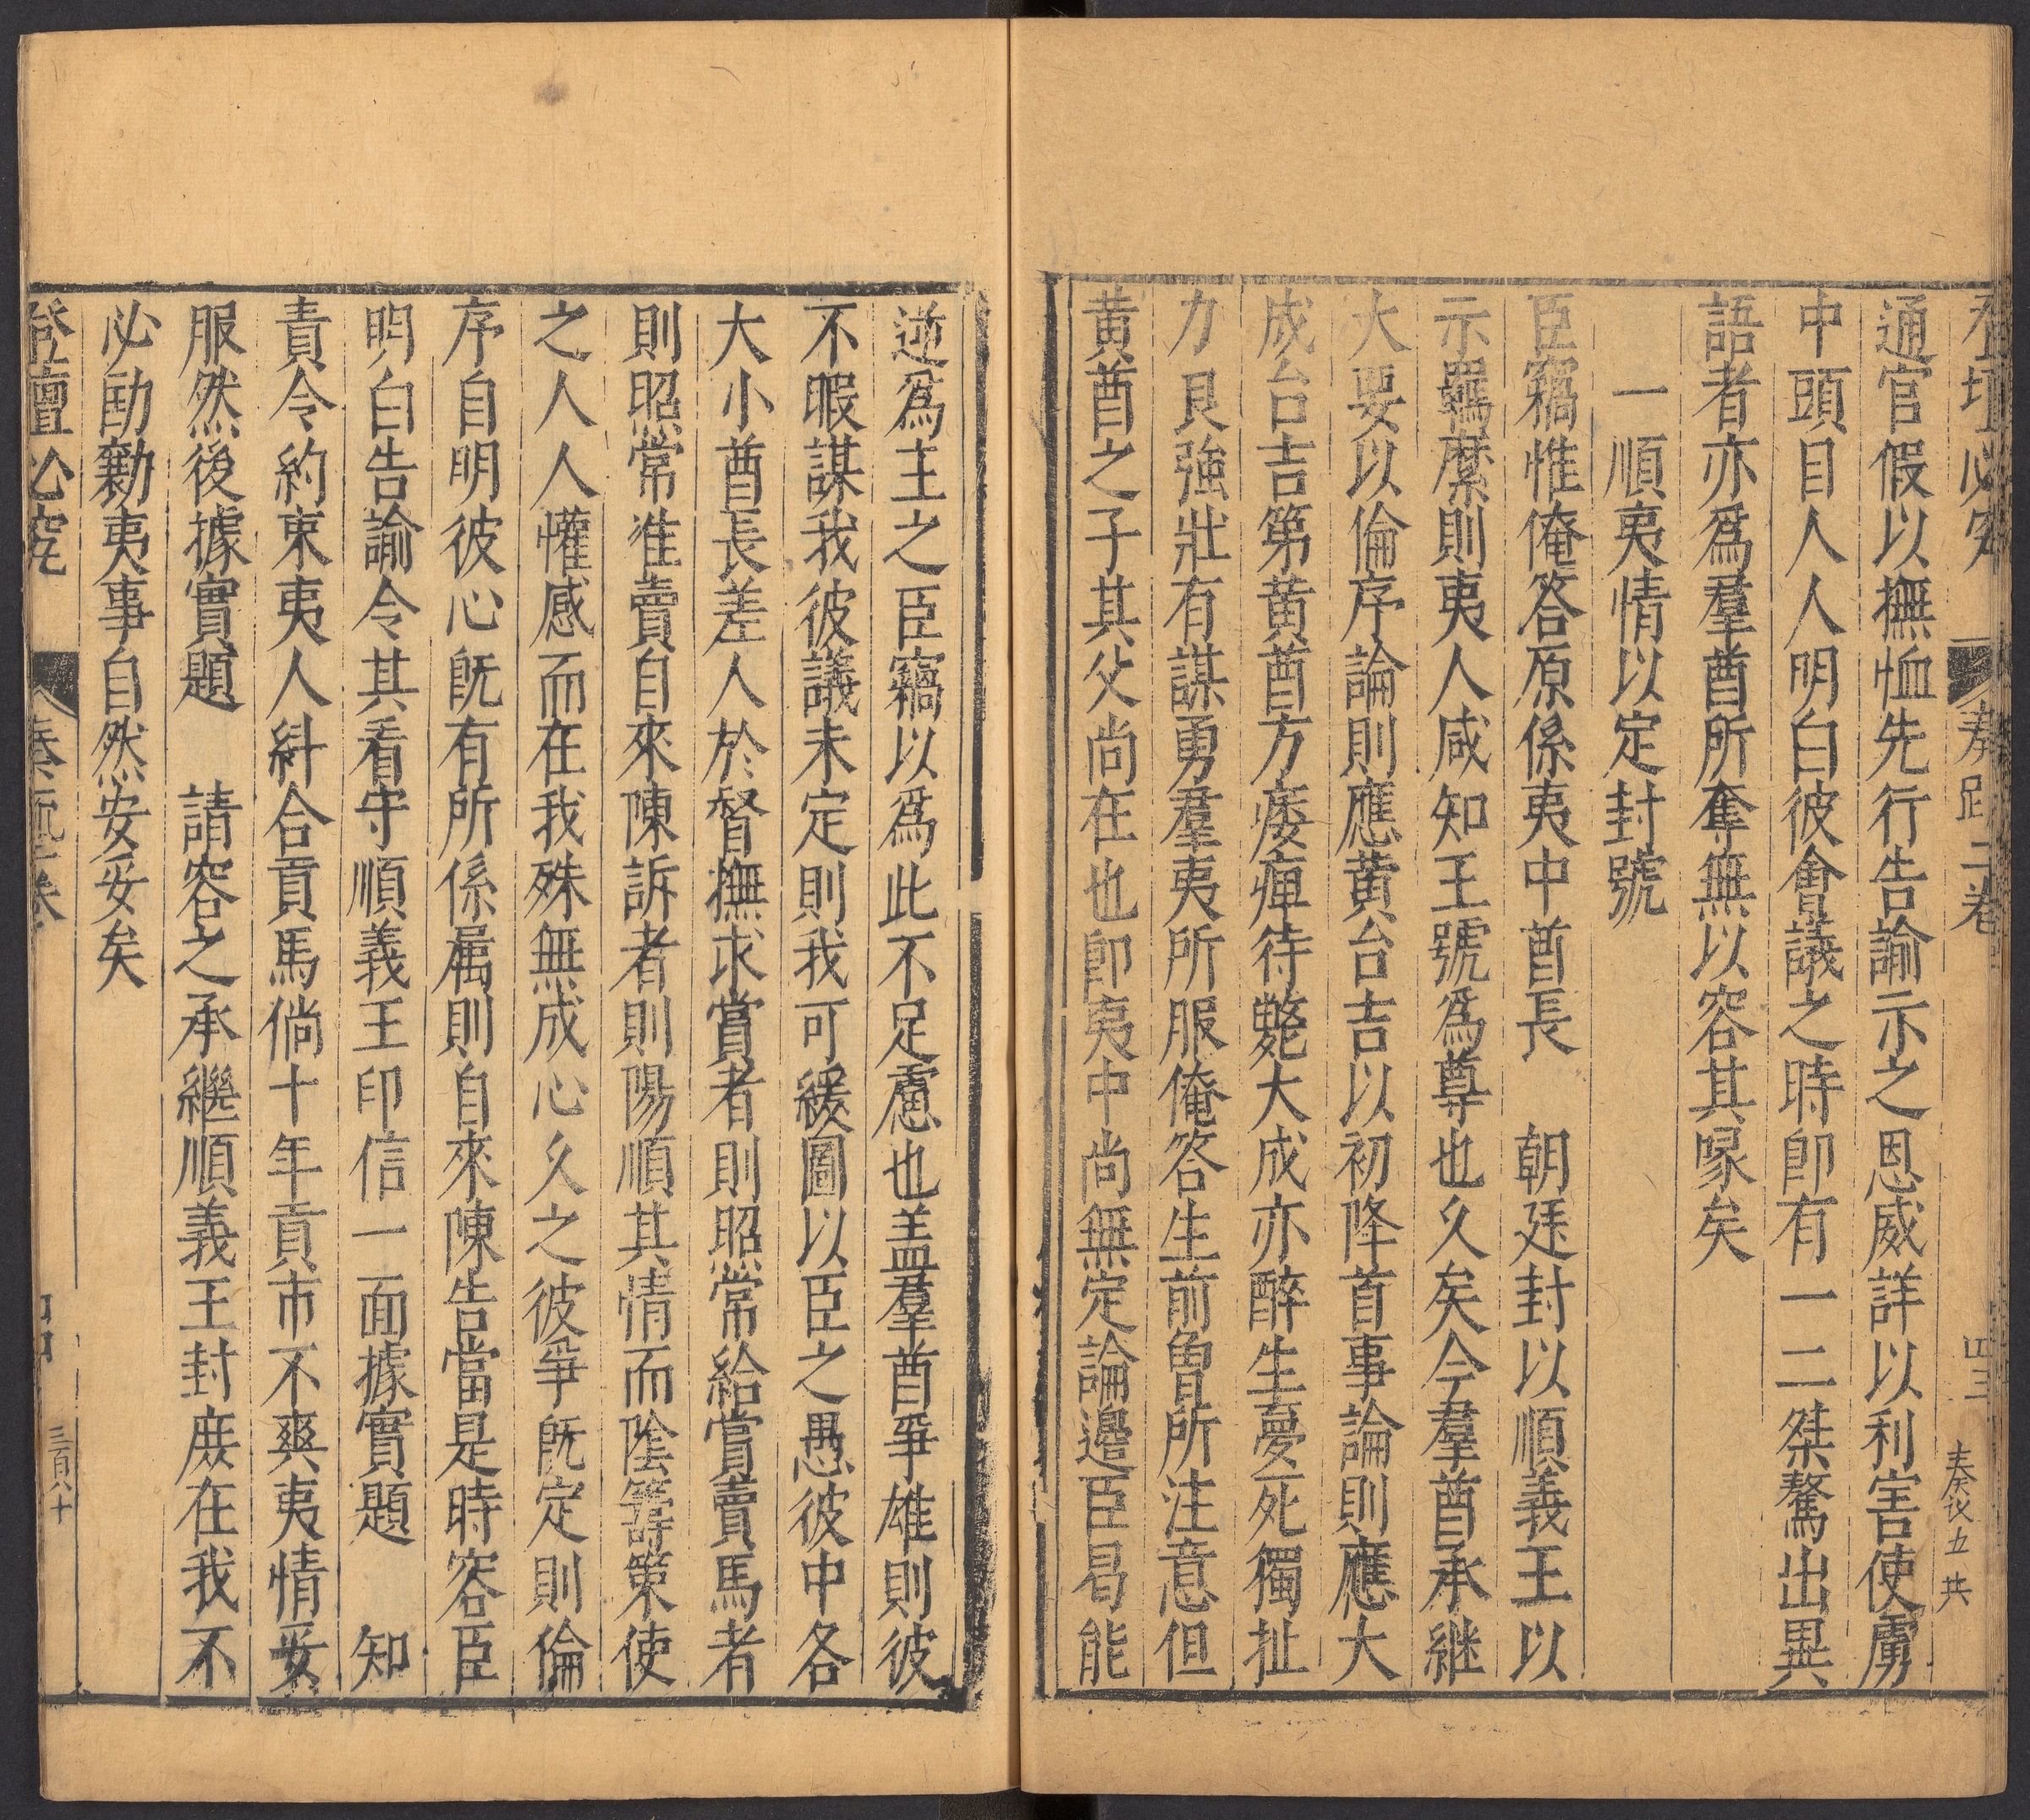 登壇必究 奏疏二卷 四三 奏議五 共
通官假以撫恤先行告諭示之恩威詳以利害使虜
中頭目人人明白彼會議之時卽有一二桀驁出異
語者亦爲羣酋所奪無以容其喙矣
一順夷情以定封號
臣竊惟俺答原係夷中酋長 朝廷封以順義王以
示羈縻則夷人咸知王號爲尊也久矣今羣酋承継
大要以倫序論則應黄台吉以初降首事論則應大
成台吉第黄酋方痿痺待斃大成亦醉生夢死獨扯
力艮強壯有謀勇羣夷所服俺答生前曾所注意但
黄酋之子其父尚在也卽夷中尚無定論邉臣曷能
逆爲主之臣竊以爲此不足慮也盖羣酋爭雄則彼
不暇謀我彼議未定則我可緩圖以臣之愚彼中各
大小酋長差人於督撫求賞者則照常給賞賣馬者
則照常准賣自來陳訴者則陽順其情而陰籌策使
之人人懽感而在我殊無成心久之彼爭旣定則倫
序自明彼心旣有所係属則自來陳告當是時容臣
明白告諭令其看守順義王印信一面據實題 知
責令約束夷人糾合貢馬倘十年貢市不爽夷情妥
服然後據實題 請容之承繼順義王封庻在我不
必勞勷夷事自然安妥矣
登壇必究 奏疏二卷 三百六十